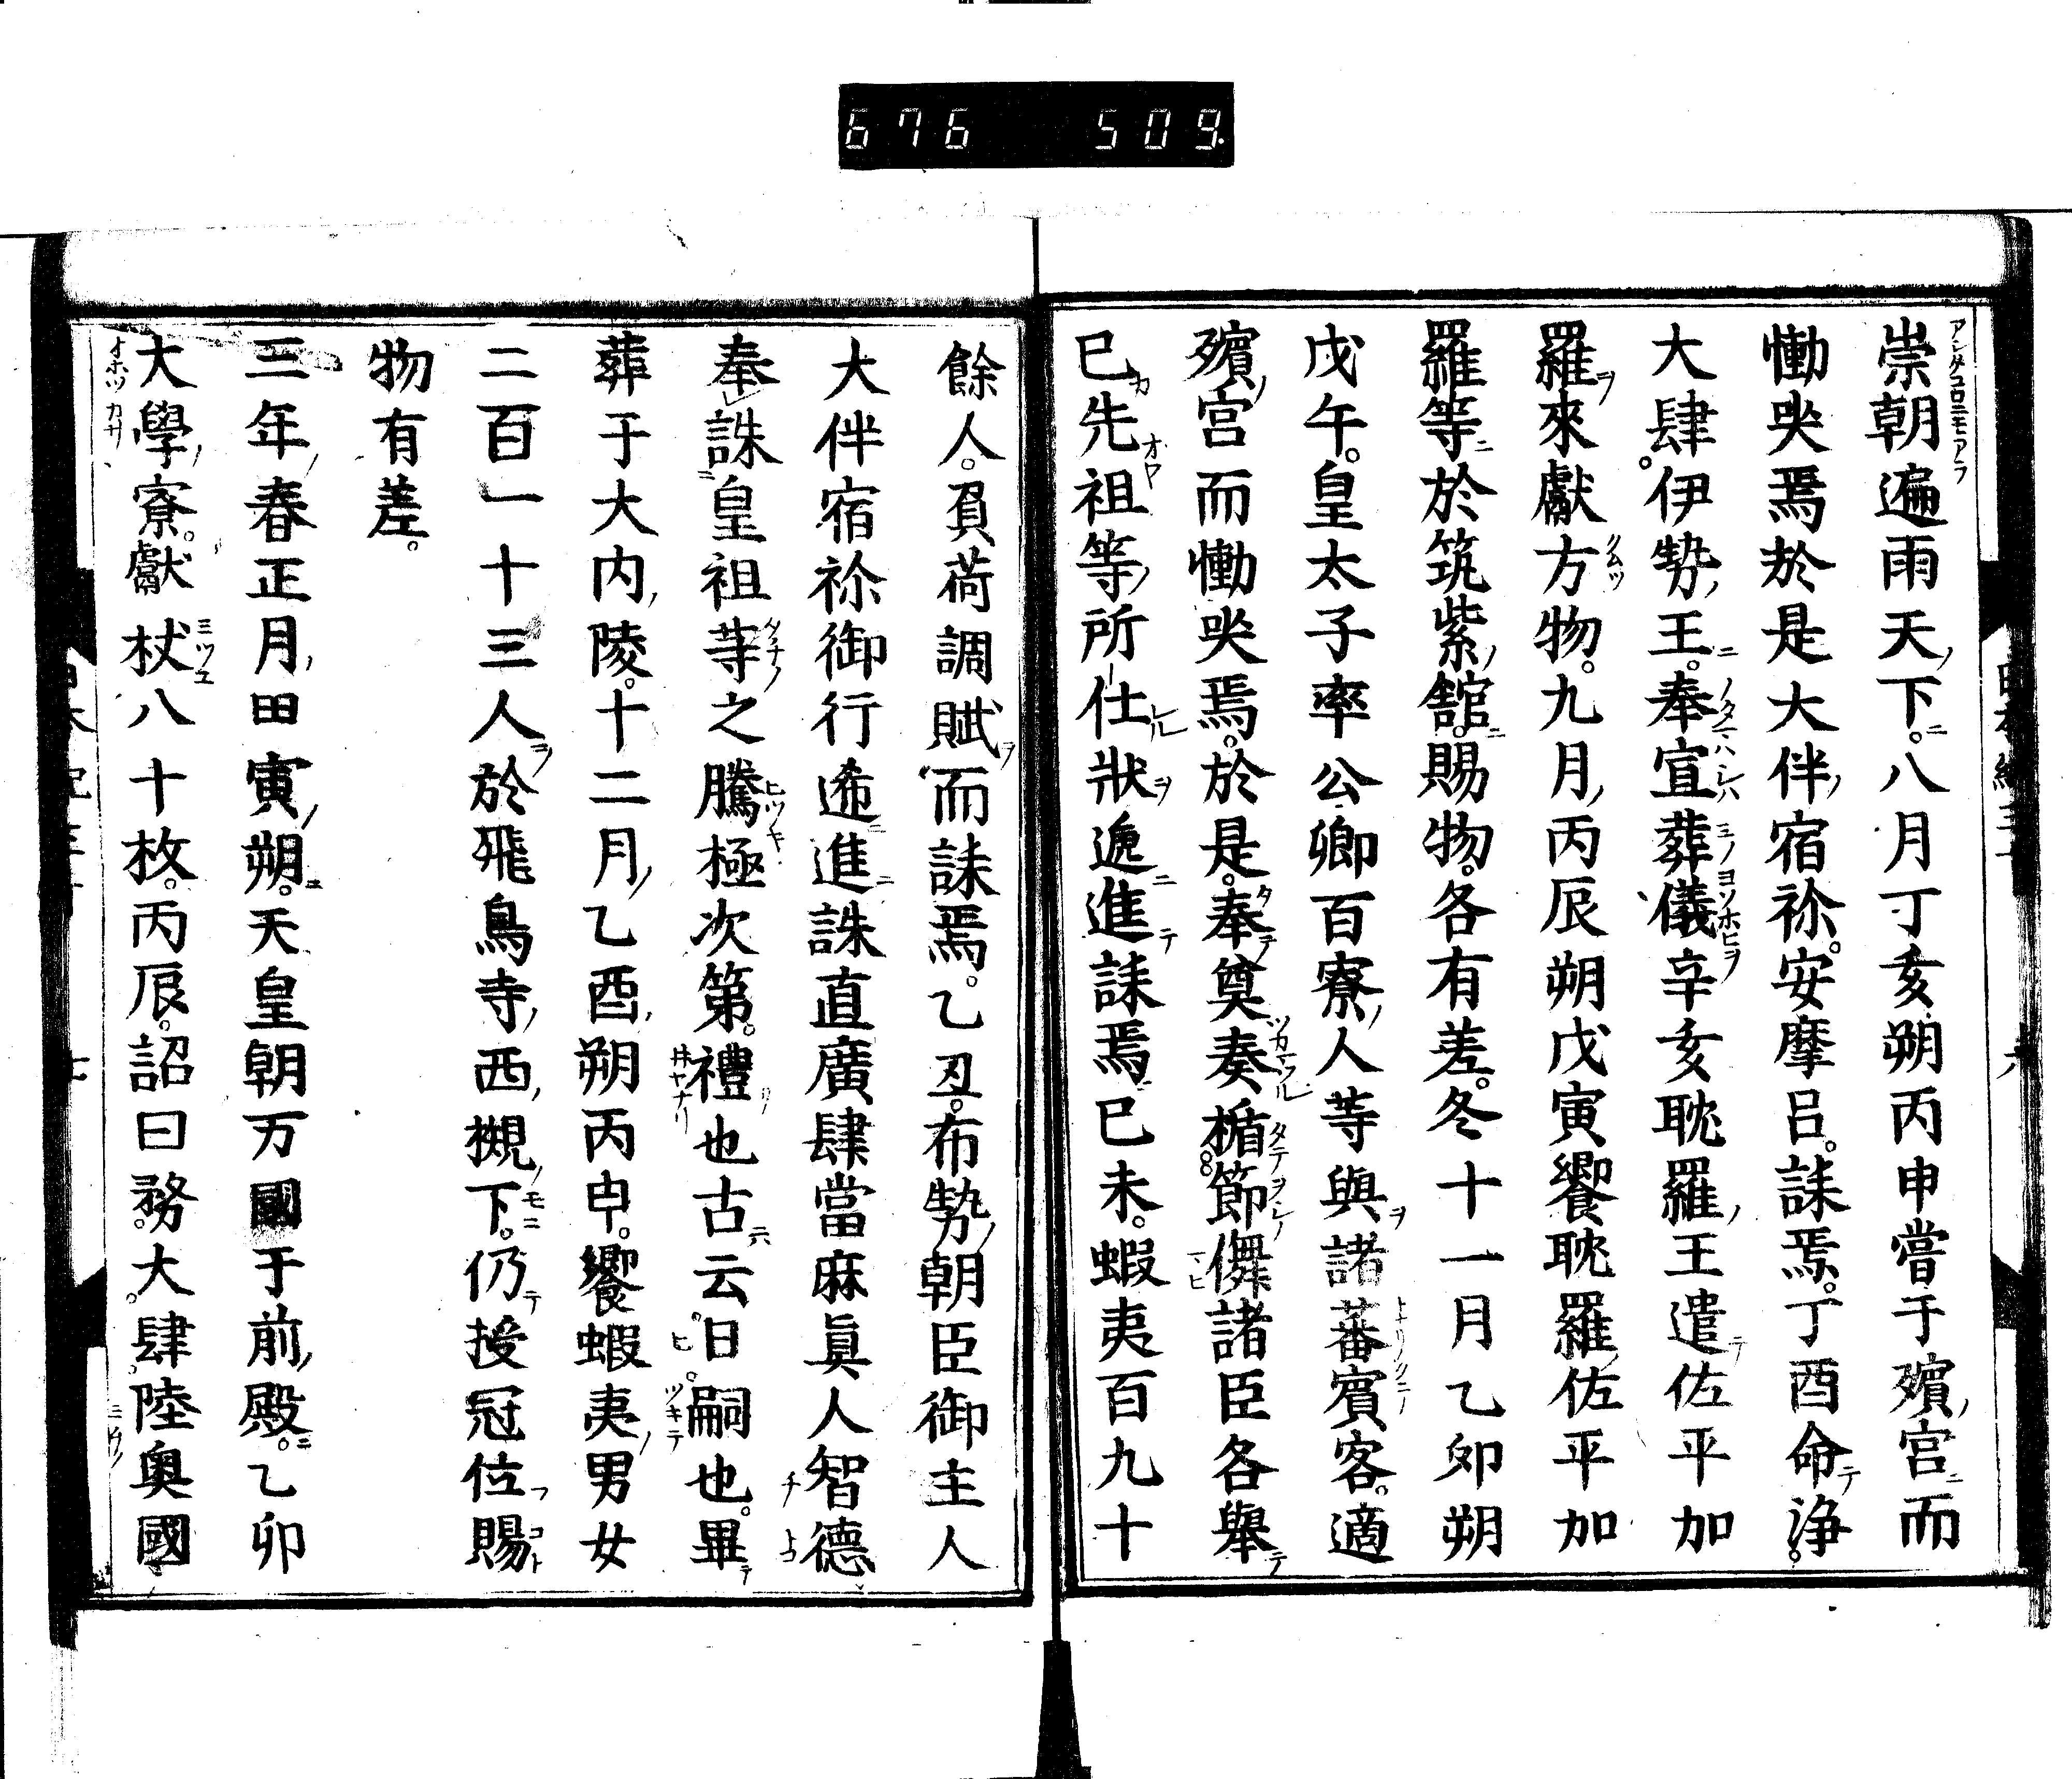 676 509
崇朝遍雨天下。八月丁亥朔丙申嘗于殯宮而
慟哭焉於是大伴宿祢。安摩呂。誄焉。丁酉命淨。
大肆。伊勢王。奉宣葬儀辛亥耽羅王遣佐平加
羅來獻方物。九月丙辰朔戊寅饗耽羅佐平加
羅等於筑紫館。賜物。各有差。冬十一月乙卯朔
戊午。皇太子率公卿百寮人等與諸蕃賓客。適
殯宮而慟哭焉。於是。奉奠奏楯節儛諸臣各舉
已先祖等所仕狀遞進誄焉已未。蝦夷百九十
餘人。負荷調賦而誄焉。乙丑。布勢朝臣御主人
大伴宿祢御行遞進誄直廣肆當麻眞人智德
奉誄皇祖等之騰極次第。禮也古云日嗣也。畢
葬于大内陵。十二月乙酉朔丙申。饗蝦夷男女
二百一十三人於飛鳥寺西槻下。仍授冠位賜
物有差。
三年春正月甲寅朔。天皇朝万國于前殿。乙卯
大學寮。獻杖八十枚。丙辰。詔曰務。大。肆。陸奥國